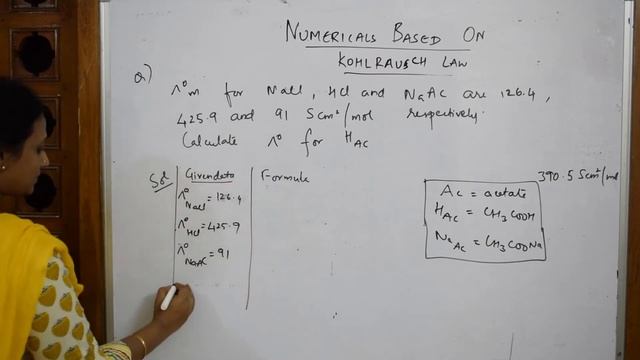 NUMERICALS BASED ON
KOHLRAUSCH LAW
Q) Λ°m for NaCl, HCl and NaAC are 126.4,
425.9 and 91 Scm²/mol respectively.
Calculate Λ° for HAC
390.5 Scm²/mol
Sol
Givendata
Λ°NaCl = 126.4
Λ°HCl = 425.9
Λ°NaAC = 91
Formula
AC = acetate
HAC = CH3COOH
NaAC = CH3COONa